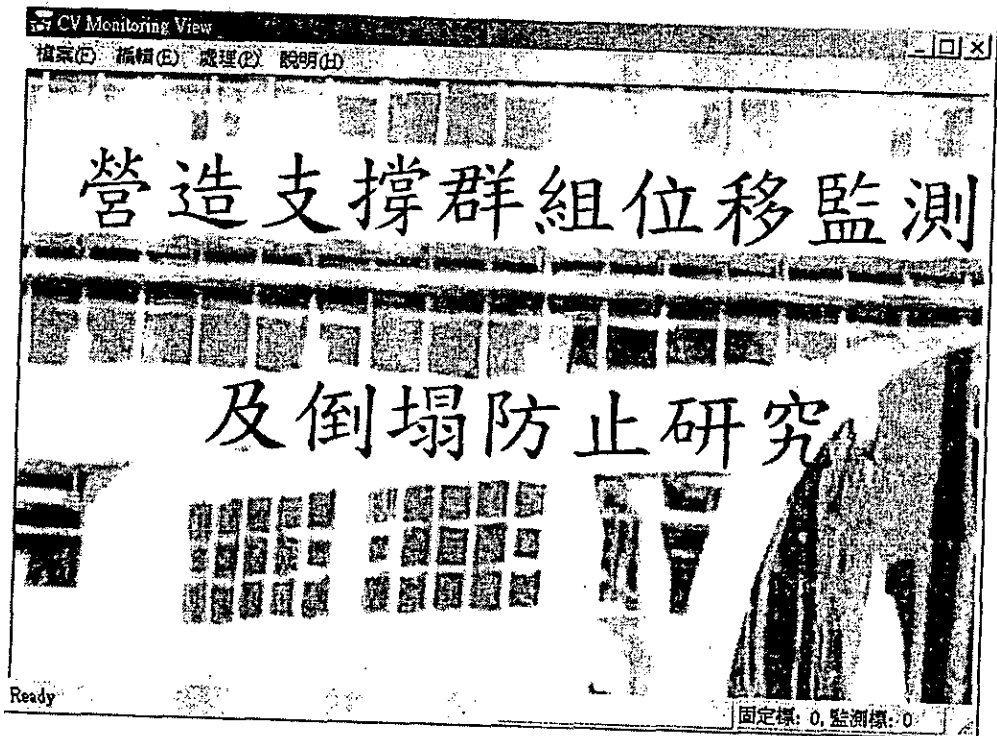 CV Monitoring View
檔案(F) 編輯(E) 處理(P) 說明(H)
營造支撐群組位移監測
及倒塌防止研究
Ready
固定標: 0, 監測標: 0